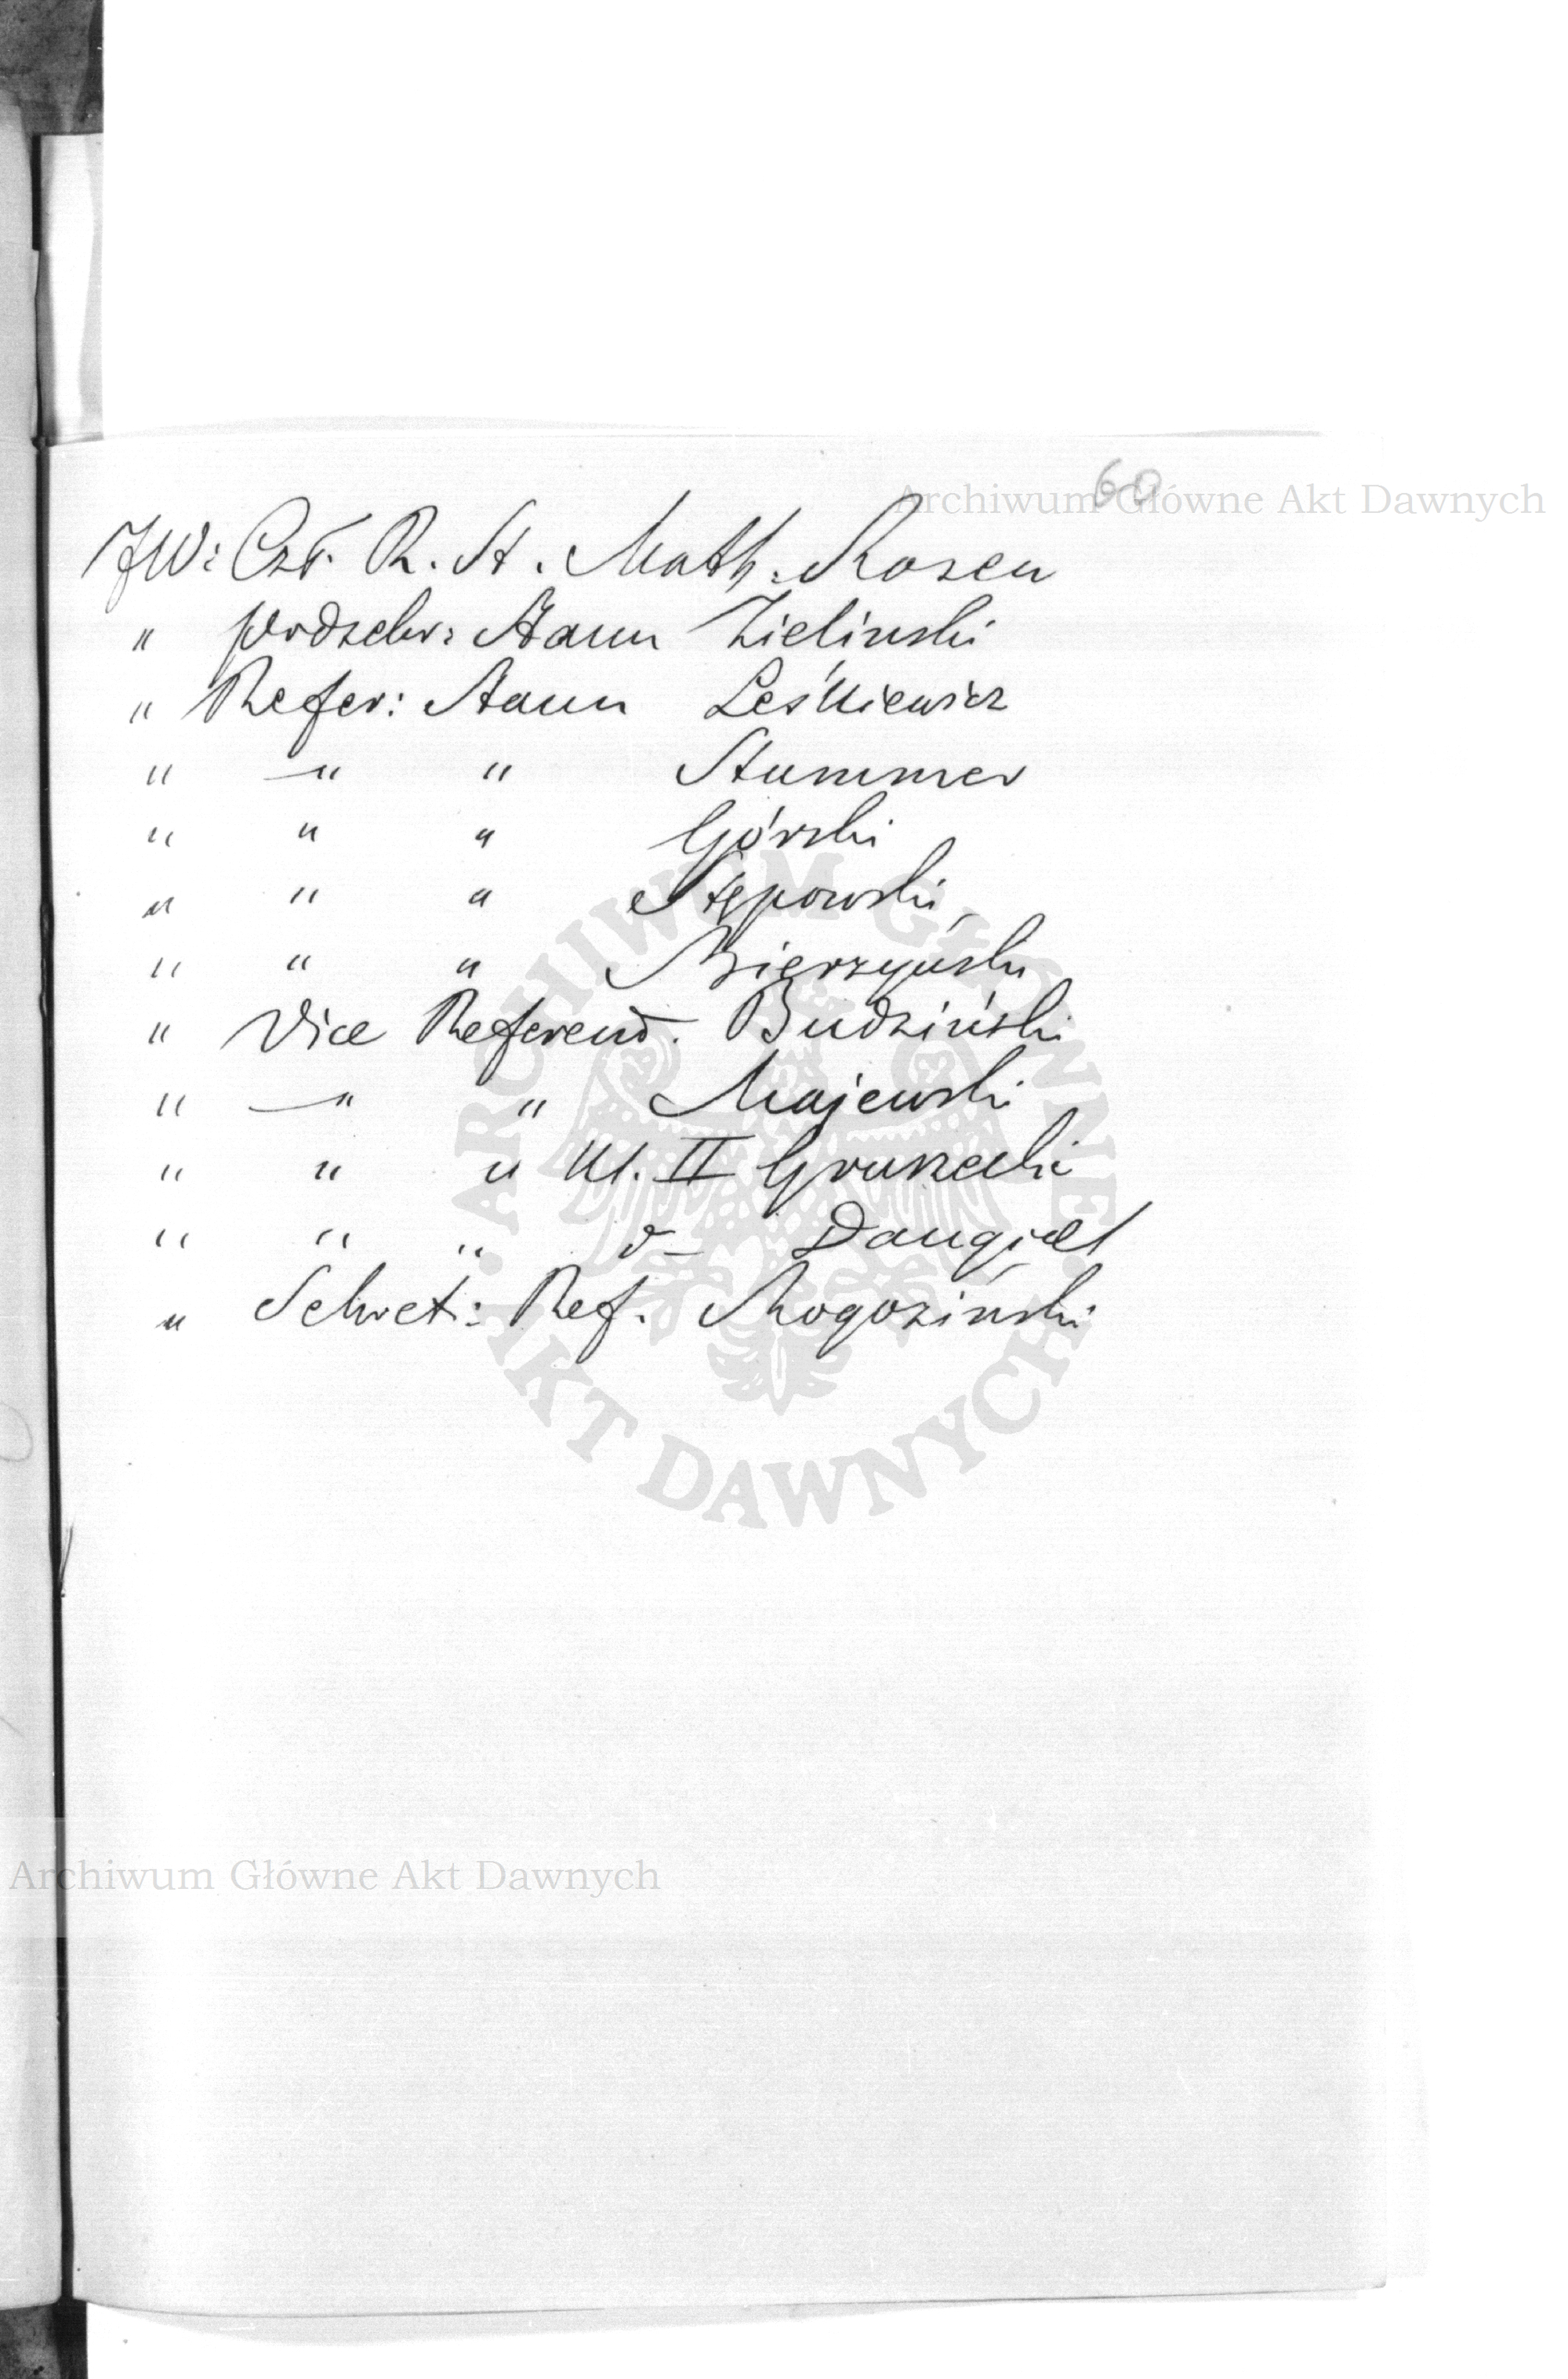 60
Archiwum Główne Akt Dawnych
JW: Czł. R. St. Math. Rosen
" podsekr: Stanu Zielinski
" Refer: Stanu Leśkiewicz
" —" " Stummer
" " " Górski
" " " Stępowski
" " " Bierzyński
" Vice Referend. Budziński
" —" " Majewski
" " " Kl. II Gruzecki
" " " d— Daugiełł
" Sekret: Ref. Rogoziński
ARCHIWUM GŁÓWNE
AKT DAWNYCH
Archiwum Główne Akt Dawnych